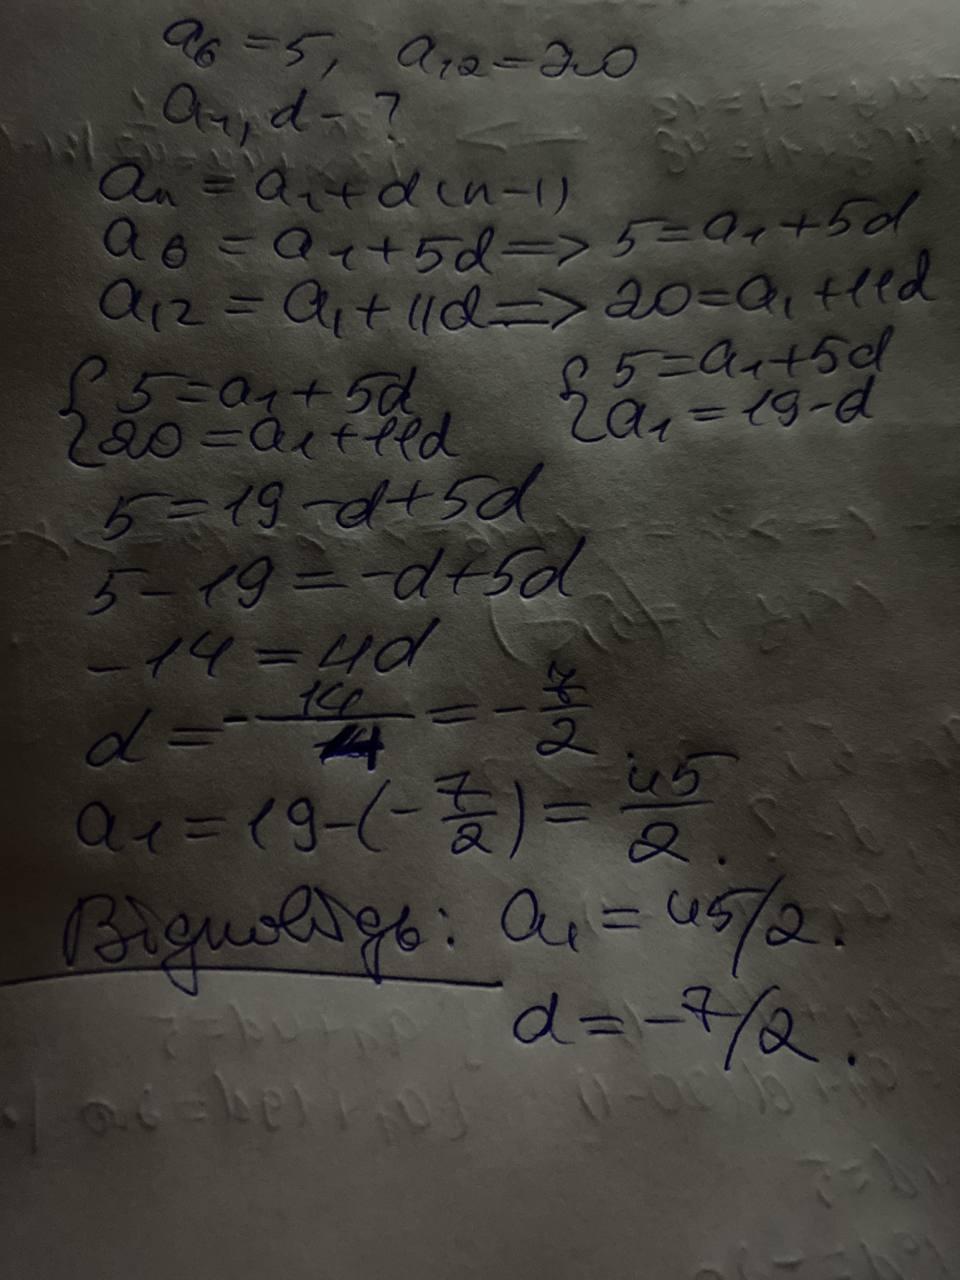 a₆ = 5, a₁₂ = 20
a₁, d - ?
aₙ = a₁ + d(n-1)
a₆ = a₁ + 5d => 5 = a₁ + 5d
a₁₂ = a₁ + 11d => 20 = a₁ + 11d
{ 5 = a₁ + 5d { 5 = a₁ + 5d
{ 20 = a₁ + 11d { a₁ = 19 - d
5 = 19 - d + 5d
5 - 19 = -d + 5d
-14 = 4d
d = -14/4 = -7/2.
a₁ = 19 - (-7/2) = 45/2.
Відповідь: a₁ = 45/2.
d = -7/2.